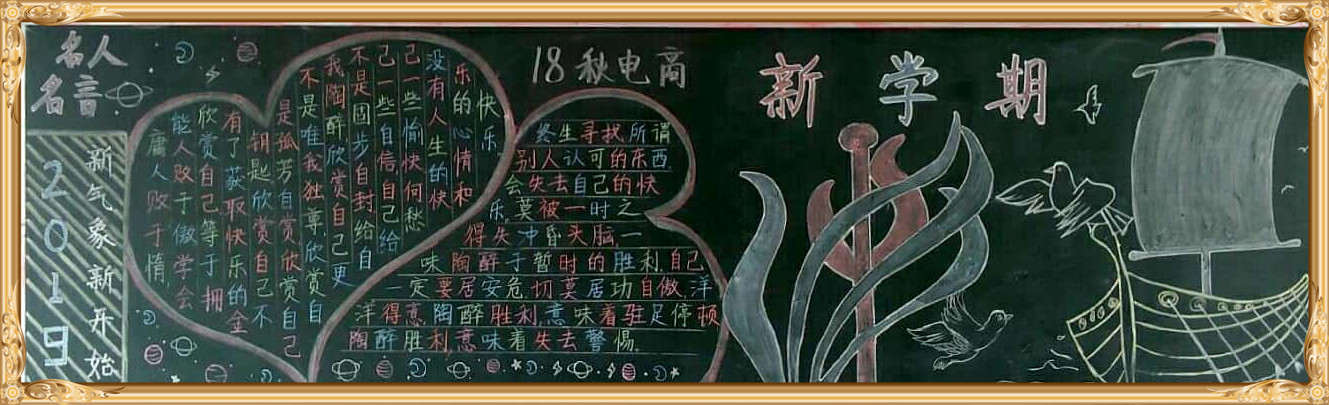 名人
名言
2019
新气象新开始
庸人败于惰,
能人败于傲学会
欣赏自己等于拥
有了获取快乐的金
钥匙欣赏自己不
是孤芳自赏欣赏自己
不是唯我独尊欣赏自
我陶醉欣赏自己更
不是固步自封给自
己一些自信自己给
己一些愉快何愁
没有人生的快
乐的心情和
快乐
18秋电商
终生寻找所谓
别人认可的东西
会失去自己的快
乐,莫被一时之
得失冲昏头脑,一
味陶醉于暂时的胜利,自己
一定要居安危,切莫居功自傲,洋
洋得意陶醉胜利,意味着驻足停顿
陶醉胜利,意味着失去警惕.
新学期